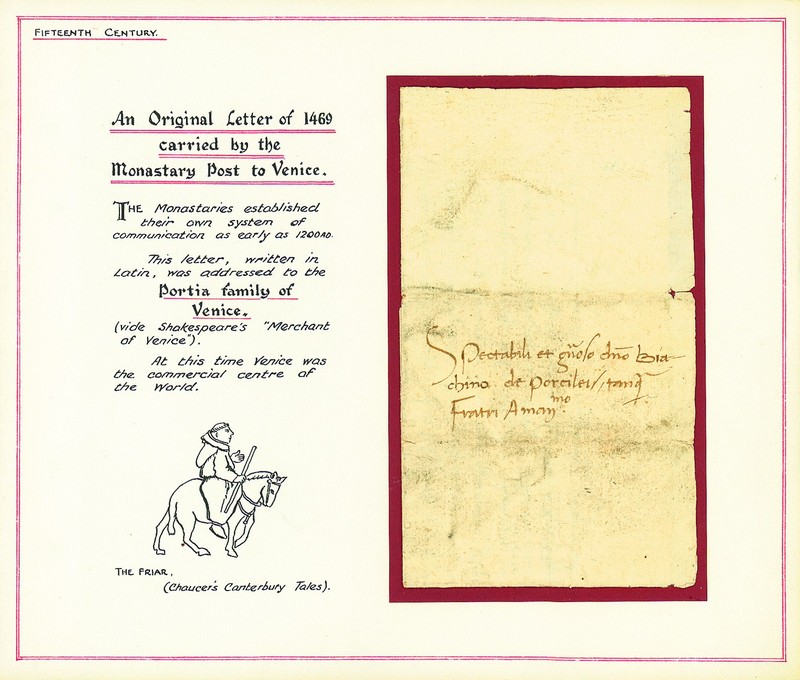 FIFTEENTH CENTURY.
An Original Letter of 1469
carried by the
Monastary Post to Venice.
THE Monastaries established
their own system of
communication as early as 1200AD.
This letter, written in
Latin, was addressed to the
Portia family of
Venice.
(vide Shakespeare's "Merchant
of Venice").
At this time Venice was
the commercial centre of
the World.
THE FRIAR.
(Chaucer's Canterbury Tales).
Spectabili et dno Bia-
chino de Porcileis tanq
Fratri Aman mo